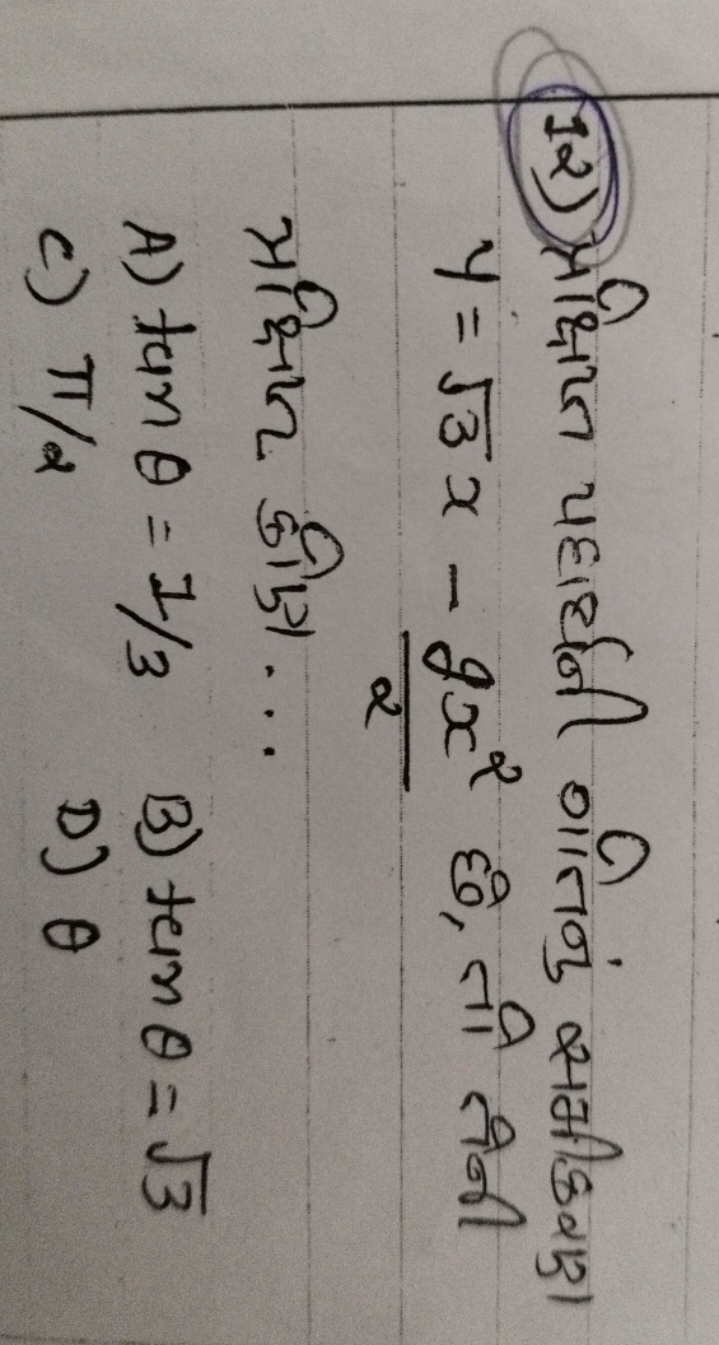 12) પ્રક્ષિપ્ત પદાર્થની ગતિનું સમીકરણ
y = √3 x - gx²/2 છે, તો તેનો
પ્રક્ષિપ્ત કોણ ...
A) tan θ = 1/3 B) tan θ = √3
C) π/2 D) θ